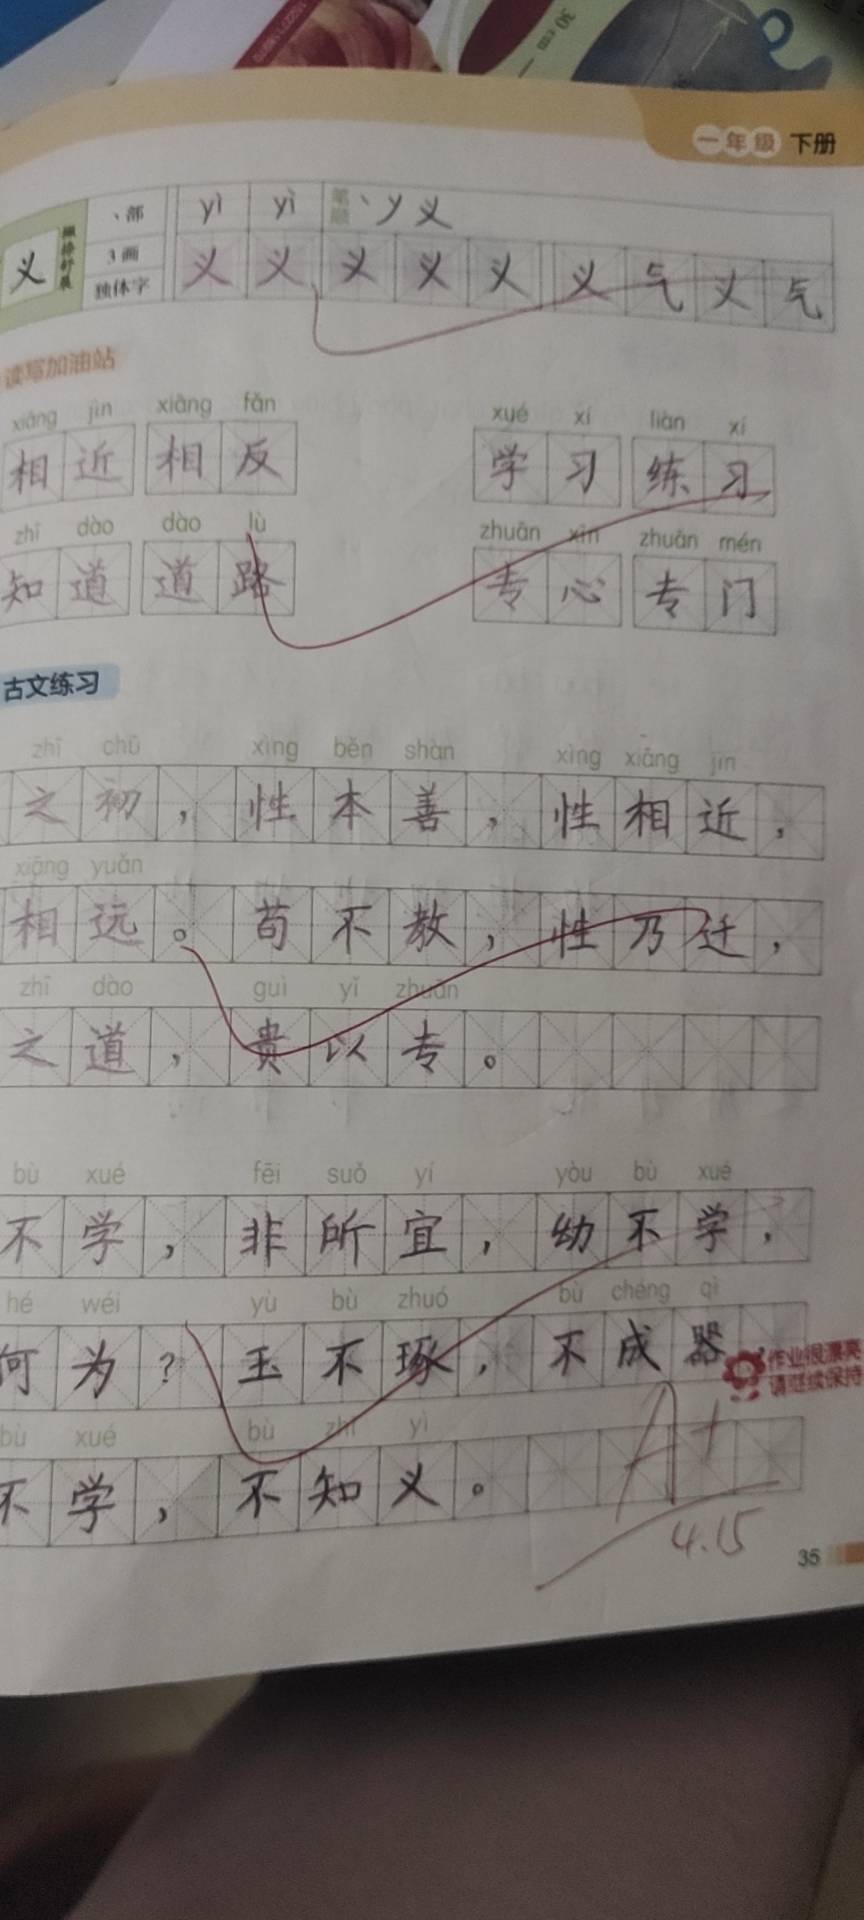 30 cm
一年级 下册
、部 yì yì 笔顺 丶 㐅 义
义 撇捺舒展 3画
独体字 义 义 义 义 义 义 气 义 气
读写加油站
xiāng jìn xiāng fǎn xué xí liàn xí
相近 相反 学习 练习
zhī dào dào lù zhuān xīn zhuān mén
知道 道路 专心 专门
古文练习
zhī chū xìng běn shàn xìng xiāng jìn
之初，性本善，性相近，
xiāng yuǎn
相远。苟不教，性乃迁，
zhī dào guì yǐ zhuān
之道，贵以专。
bù xué fēi suǒ yí yòu bù xué
不学，非所宜，幼不学，
hé wéi yù bù zhuó bù chéng qì
何为？玉不琢，不成器，
作业很漂亮
请继续保持
bù xué bù zhī yì
不学，不知义。
A+
4.15
35